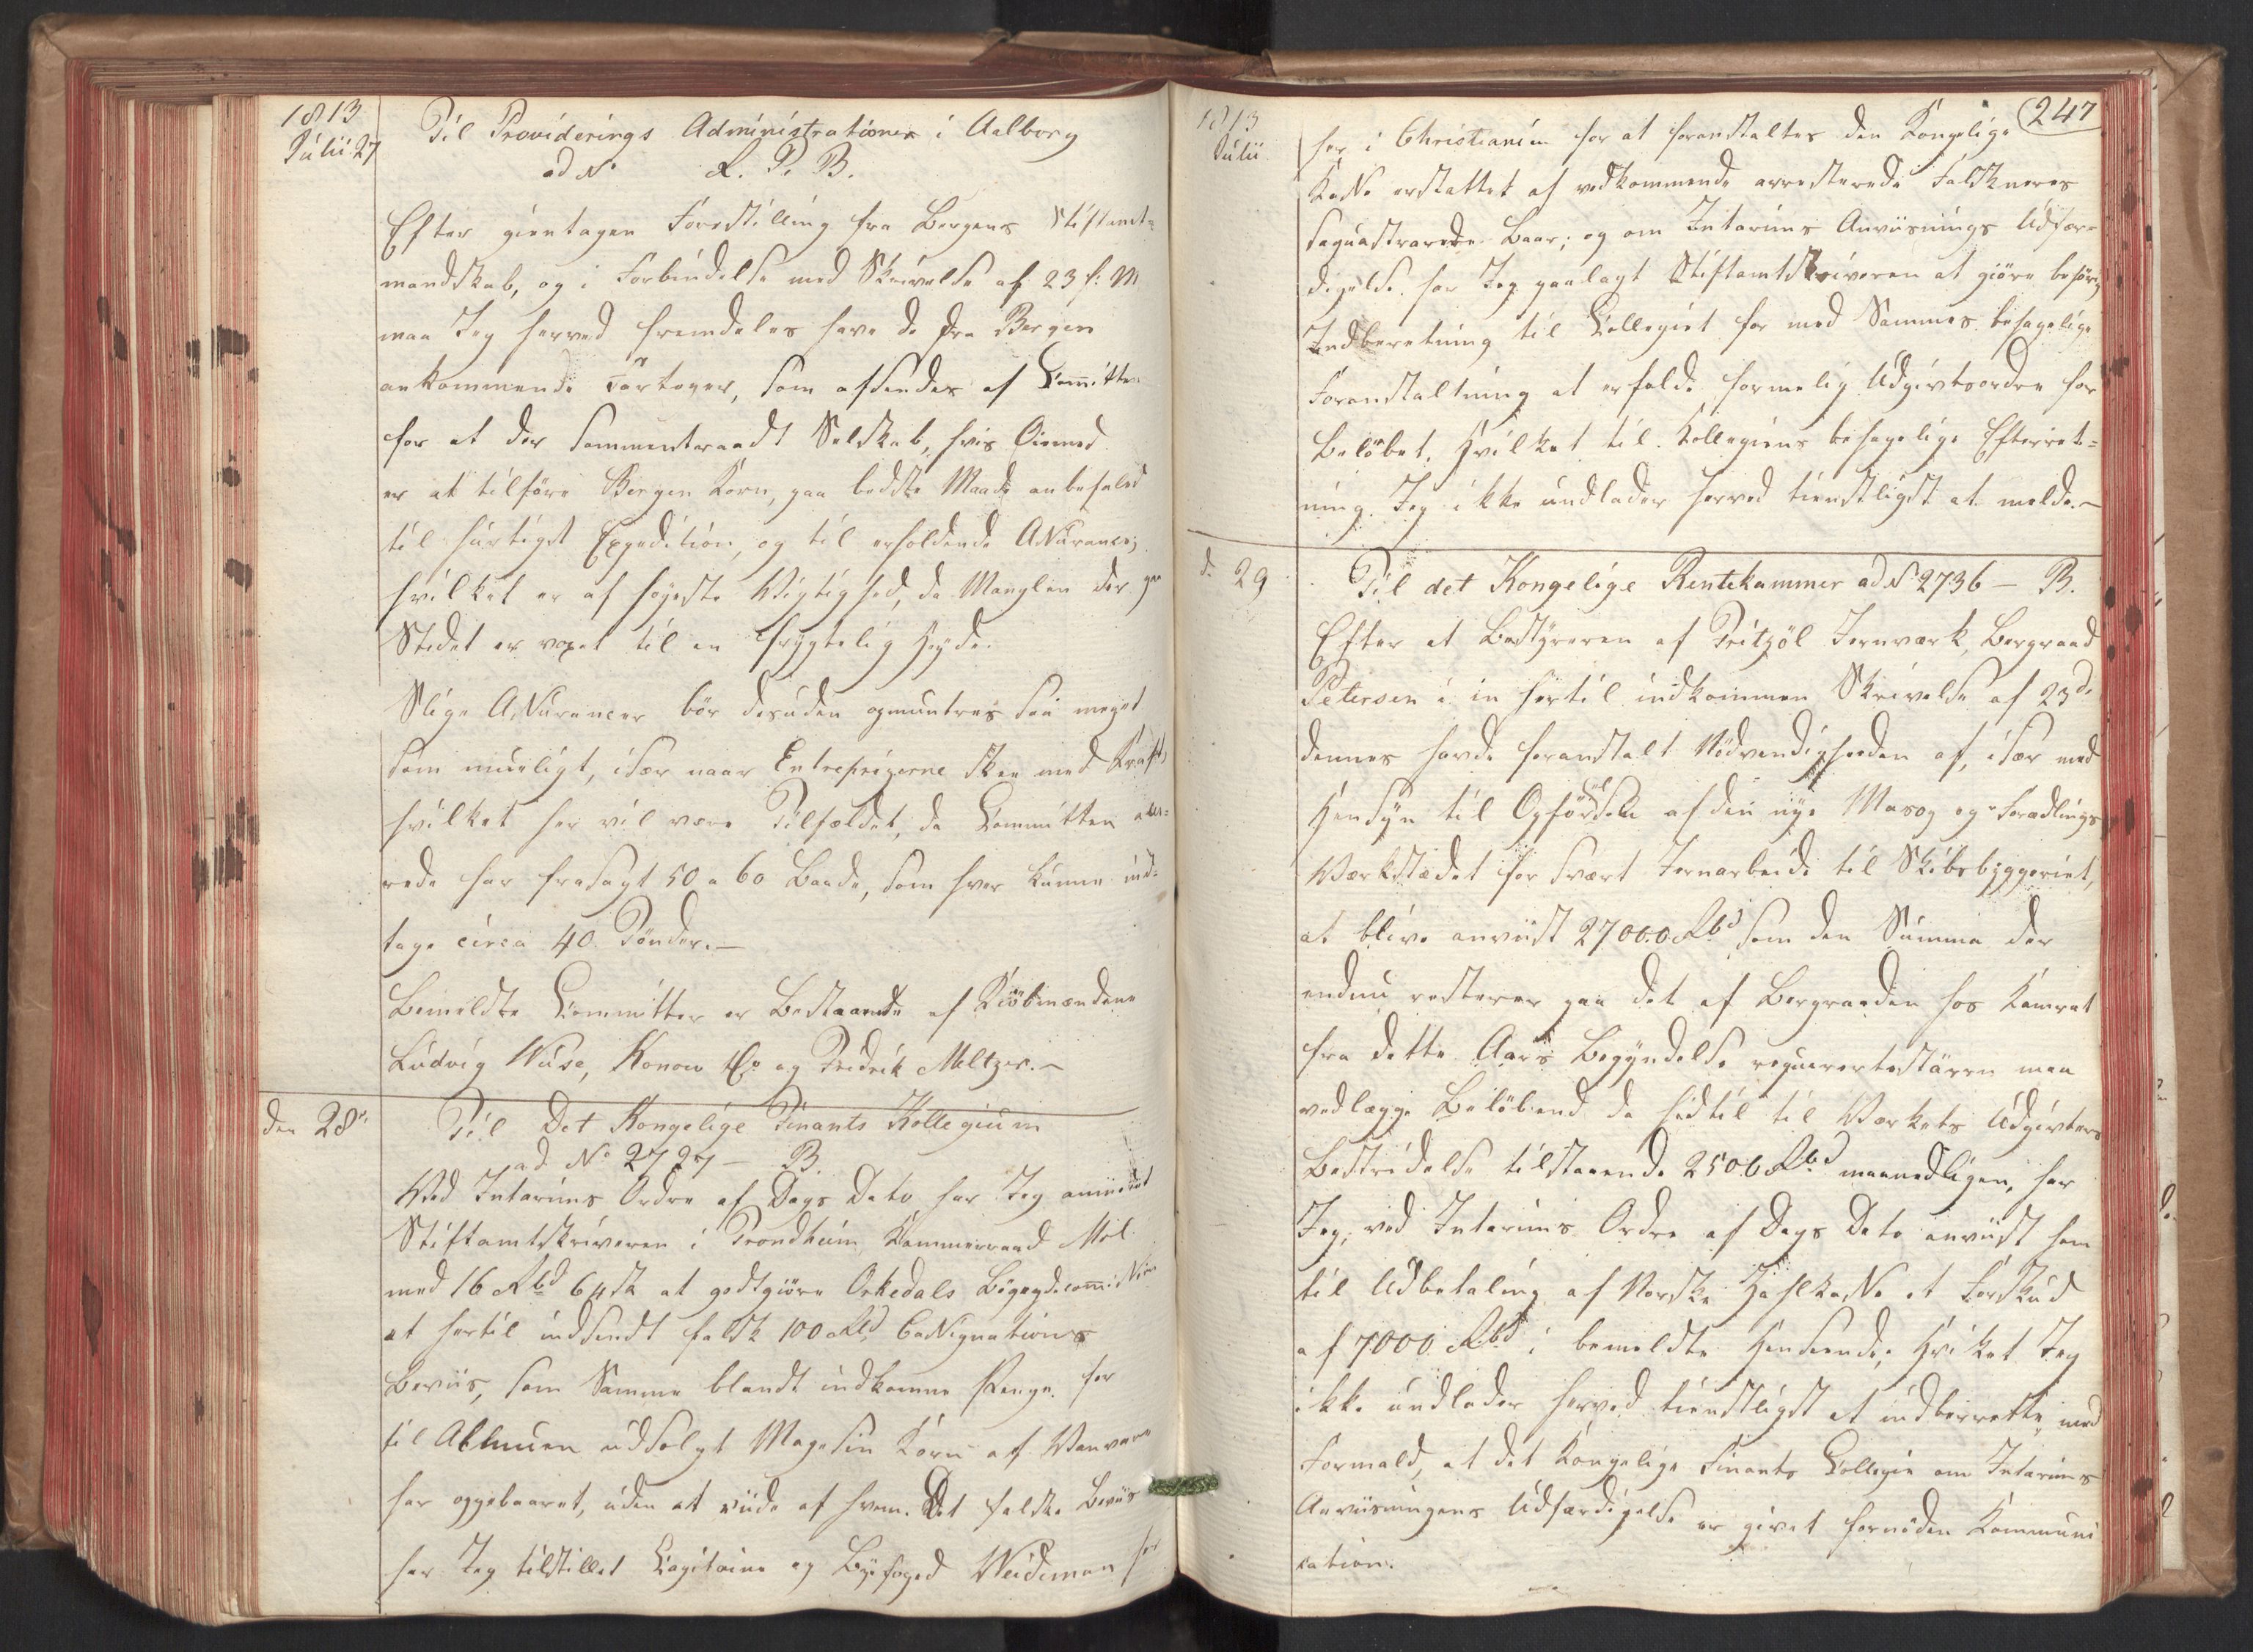 1813
Julii 27
Til Providerings Administrationen i Aalborg
ad No R. P. B.
Efter gientagen Forestilling fra Bergens Stiftamt-
mandskab, og i Forbindelse med Skrivelse af 23 f: M
maa Jeg herved fremdeles have de fra Bergen
ankommende Fartøyer, som afsendes af Committeen
for at der sammentraadt Selskab, hvis Øiemed
er at tilføre Bergen Korn, paa bedste Maade anbefaled
til hurtigst Expedition, og til erholdende Assurance;
hvilket er af høyeste Vigtighed, da Manglen der paa
Stedet er voxet til en frygtelig Høyde.
Slige Assurancer bør desuden opmuntres saa meget
som mueligt, især naar Entreprizerne skee med Kraft,
hvilket her vil være Tilfældet, da Committen alle-
rede har fragtet 50 a 60 Baade, som hver kunne ind-
tage circa 40 Tønder.—
Bemeldte Committee er bestaaende af Kiøbmændene
Ludvig Wiese, Konow & Co og Fredrik Meltzer.—
den 28de
Til Det Kongelige Finants Kollegium
ad No 2727 — B.
Ved Interims Ordre af Dags Dato har Jeg anviist
Stiftamtskriveren i Trondhiem Kammerraad Möl
med 16 Rbd 64 sk at godtgiøre Orkedals Bøygdecommission
et hertil indsendt falsk 100 Rd Cassignations
Beviis, som Samme blandt indkomne Penge for
til Almuen udsolgt Magasin Korn af Vanvare
har oppebaaret, uden at viide af hvem. Det falske Beviis
har Jeg tilstillet Capitaine og Byefoged Weideman for
247
1813
Julii
her i Christiania for at foranstaltes den Kongelige
Kasse erstattet af vedkommende arresterede Falskneres
seqvastrerede Boer; og om Interims Anviisnings Udfær-
digelse har Jeg paalagt Stiftamtskriveren at giøre behørig
Indberetning til Collegiet for med Sammes behagelige
Foranstaltning at erholde formelig Udgivtsordre for
Beløbet. Hvilket til Kollegiens behagelige Efterret-
ning Jeg ikke undlader herved tienstligst at melde.—
d. 29
Til det Kongelige Rentekammer ad No 2736 — B.
Efter at Bestyreren af Fritzöl Jernværk, Bergraad
Petersen i in hertil indkommen Skrivelse af 23d.
dennes havde forestalt Nødvendigheeden af, især med
Hensyn til Opførelsen af den nye Masov og Forædlings
Værkstædet for svært Jernarbeide til Skibsbyggeriet,
at blive anviist 27000 Rbd som den Summa der
endnu resterer paa det af Bergraaden hos Kamret
fra dette Aars Begyndelse reqvirerte større maa
vedlægge Beløb end de hidtil til Værkets Udgivters
Bestridelse tilstaaende 2500 Rbd maanedligen, har
Jeg, ved Interims Ordre af Dags Dato anviist ham
til Udbetaling af Norske Zahlkasse et Forskud
af 7000 Rbd i bemeldte Henseende; Hvilket Jeg
ikke undlader herved tienstligst at indberrette, med
Formeld, at det Kongelige Finants Collegie om Interims
Anviisningens Udfærdigelse er givet fornøden Kommuni
cation.